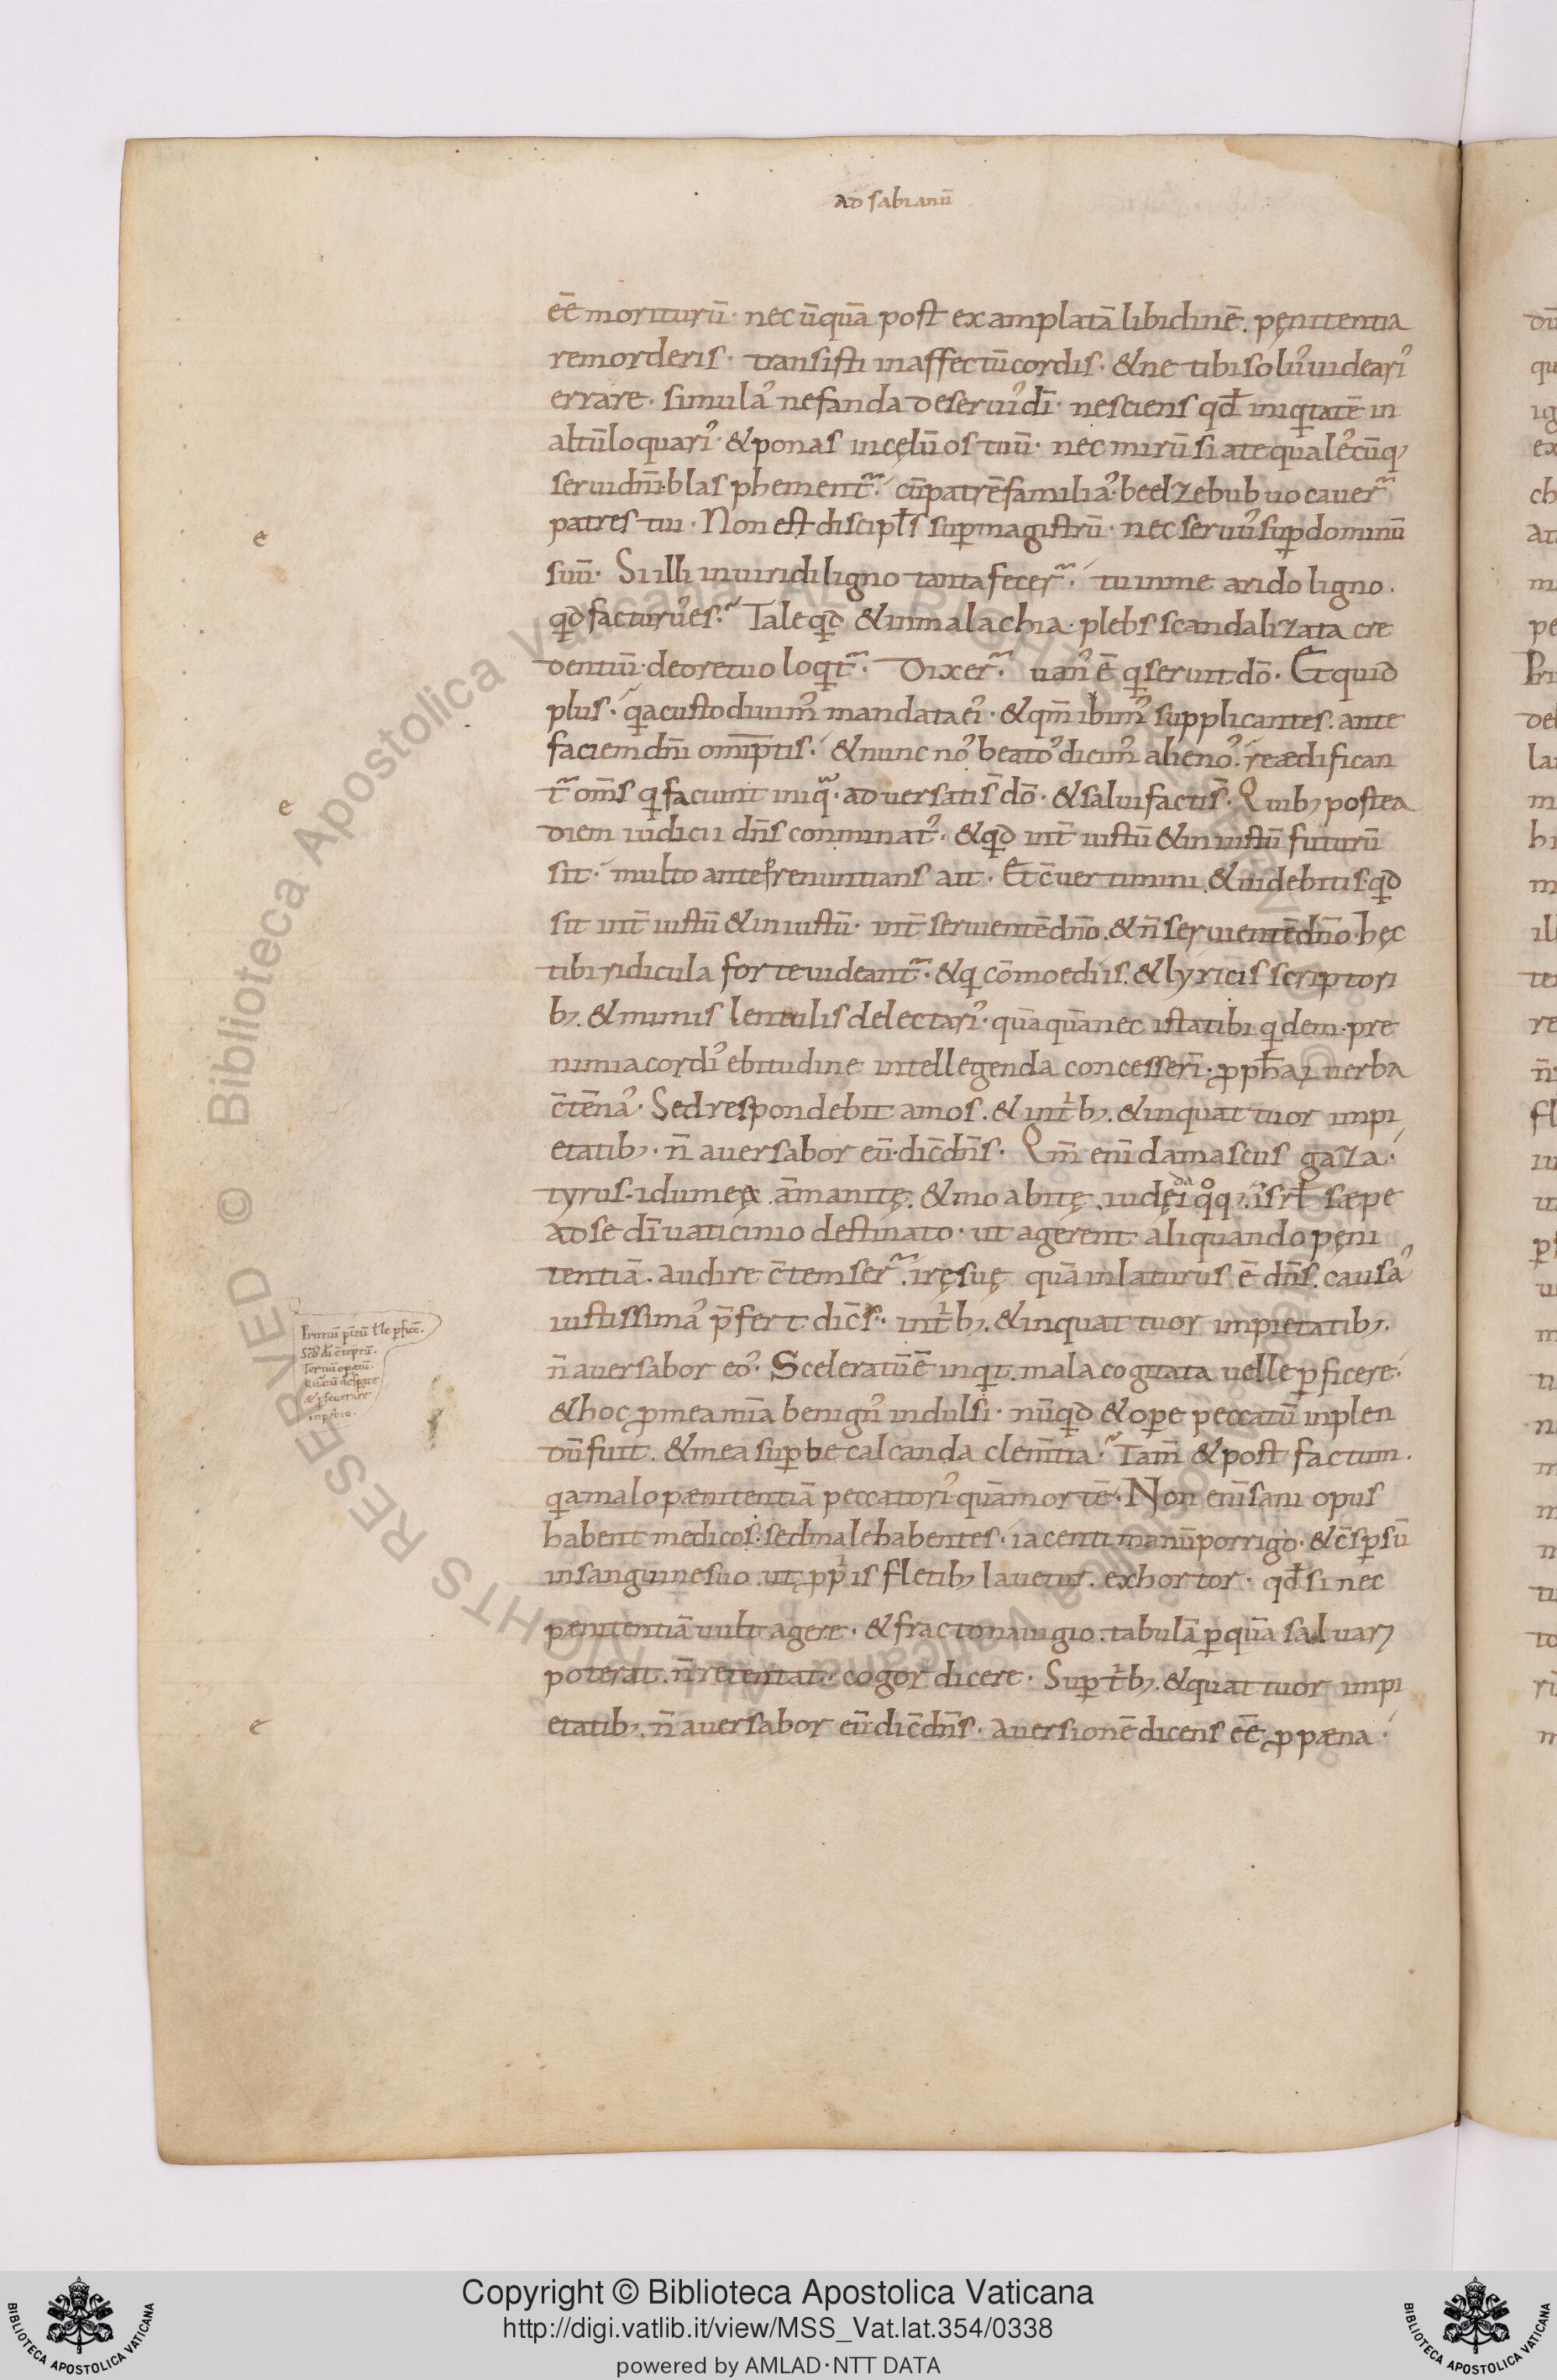 ad sabianū
ēē moriturū· nec ūquā post examplatā libidinē. pęnitentia
remorderis· transisti inaffectūcordis· & ne tibi solu᾽uideari᾽
errare· simula᾽ nefanda deserui᾽di̅· nesciens qđ iniq̇tatē in
altūloquari᾽· & ponas incęlū os tuū· nec mirū si ate quale᾽cūq;
seruidn̄i·blasphement̃· cūpatrēfamilia᾽·beelzebub uocauer̃
patres tui· Non est discipłs sup̱magistrū· nec seruu᾽sup̱dominū
suū· Si illi inuiridi ligno tanta fecer̃· tu inme arido ligno.
qd facturu᾽es·̃ Tale qd & inmalachia· plebs scandalizata cre
dentiū· deoretuo loqit̃· Dixer̃· uan᾽ ē qi seruit dō· Et quid
plus·̃ qia custodiuim᾽ mandata ei᾽· & qm̄ ibim᾽ supplicantes. ante
faciem dn̄i omīptis· & nunc no᾽ beato᾽ dicim᾽ alieno᾽· reædifican
t̃ om̄s qi faciunt iniqᵃ· aduersatis̄ dō· & salui factis̄· Quib; postea
diem iudicii dn̄s conminat᾽· & qd int̄ iustū & iniustū futurū
sit· multo ante prenuntians ait· Et c̄uertimini & uidebitis·qd
sit int̄ iustū & iniustū· int̄ seruientē dn̄o. & n̄ seruientē dn̄o· hęc
tibi ridicula forte uideant̃· & qi cōmoediis. & lyricis scriptori
b;. & mimis lentulis delectari᾽· quāquā nec ista tibi qidem·pre
nimia cordi᾽ ebitudine intellegenda concesseri̅· p̱ph̄aꝝ uerba
c̄tēna᾽· Sed respondebit amos. & int̍b;. & inquattuor impi
etatib;· n̄ auersabor eū· dic̄dn̄s· Qm̄ eni̅ damascus gaza·
tyrus· idumeę āmanitę. & moabitę iudęi da qͦq; isrł sæpe
ad se di̅ uaticinio destinato· ut agerent aliquando pęni
tentiā. audire c̄temser̃. iręsuę quāinlaturus ē dn̄s. causa᾽
iustissima᾽ p̄fert dic̄s· int̍b;. & inquattuor impietatib;.
n̄ auersabor eo᾽· Sceleratūē inqit. mala cogitata uelle p̱ficere·
& hoc p̱mea mi̅a benign᾽ indulsi· nūqd & ope peccatū inplen
dūfuit. & mea sup̱be calcanda clem̄tia·̃ Tam̄ & post factum.
qia malo pænitentiā peccatori᾽ quāmortē· Non eni̅ sani opus
habent medicos·sedmalehabentes· iacenti manūporrigo· & c̄sp̱sū
insanguine suo. ut p̱pi̍is fletib; lauetur. exhortor· qđ si nec
pænitentiā uult agere· & fracto nauigio. tabulā p̱quā saluarꝫ
poterat. n̄ retentat· cogor dicere· Sup̱ t̍b;. & quattuor impi
etatib;. n̄ auersabor eū dic̄dn̄s· auersionē dicens ēē p̱pæna·
e
e
e
Copyright © Biblioteca Apostolica Vaticana
http://digi.vatlib.it/view/MSS_Vat.lat.354/0338
powered by AMLAD·NTT DATA
BIBLIOTECA APOSTOLICA VATICANA
BIBLIOTECA APOSTOLICA VATICANA